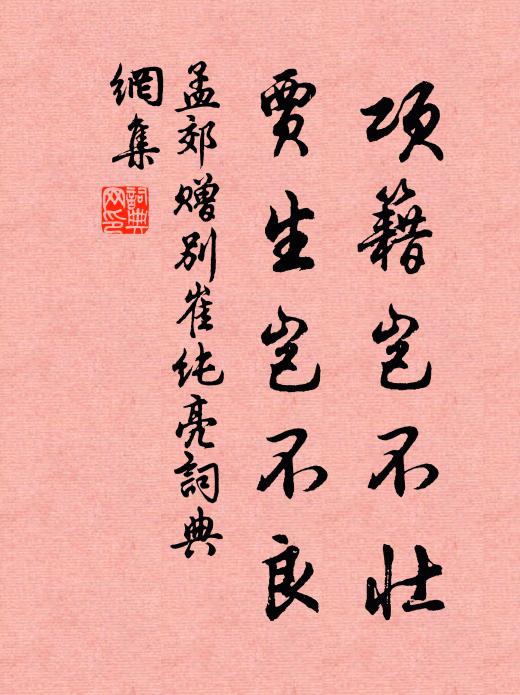 項籍岂不壮
賈生岂不良
孟郊赠别崔纯亮詞典
網集
詞典网印